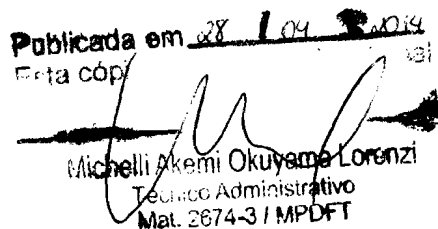 Publicada em 28 / 04 / 2014
Esta cópi
Michelli Akemi Okuyama Lorenzi
Técnico Administrativo
Mat. 2674-3 / MPDFT